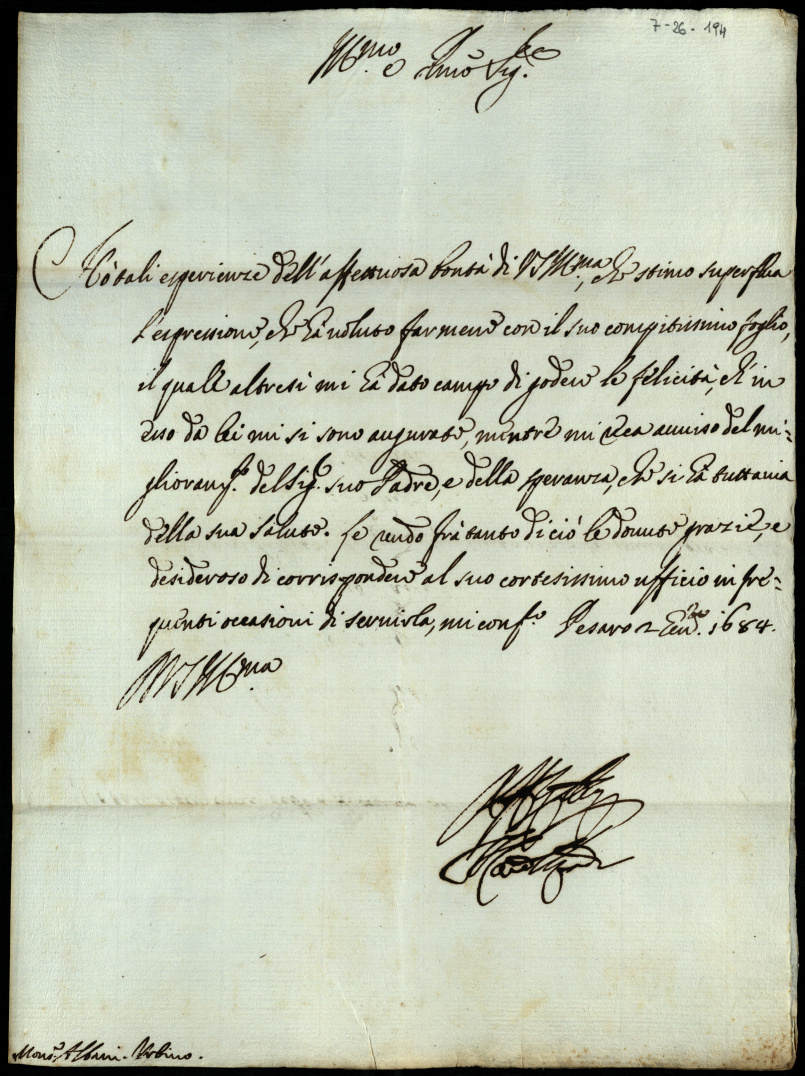 7-26-194
Ill.mo e Rmo Sig.re
Hò tali esperienze dell'affettuosa bontà di VS Ill.ma, che stimo superflua
l'espressione, che hà voluto farmene con il suo compitissimo foglio,
il quale altresi mi hà dato campo di godere le felicità, ch'in
esso da lei mi si sono augurate, mentre mi reca auuiso del mi=
glioram.to del Sig.r suo Padre, e della speranza, che si hà tuttauia
della sua salute. Le rendo frà tanto di ciò le douute grazie, e
desideroso di corrispondere al suo cortesissimo ufficio in fre=
quenti occasioni di seruirla, mi conf.o Pesaro 2 Gen.ro 1684.
DVS Ill.ma
Mons.r Albani. Urbino.